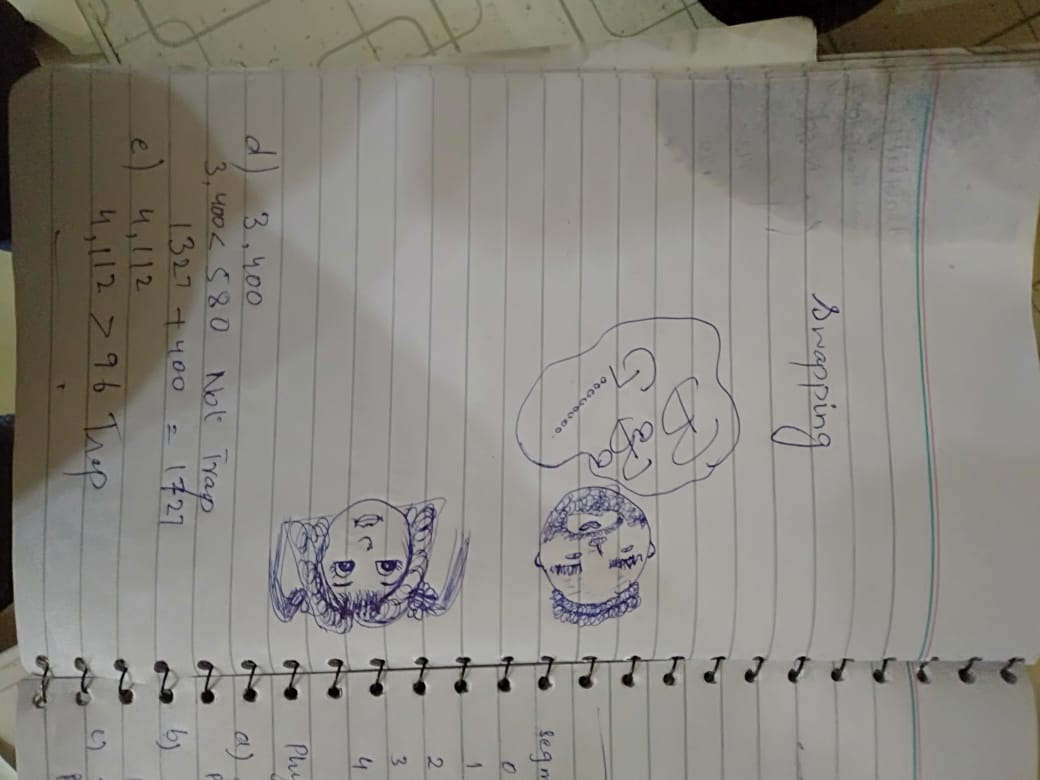 Swapping
d) 3,400
3,400 < 580 Not Trap
1327 + 400 = 1727
e) 4,112
4,112 > 96 Trap
segm
0
1
2
3
4
Phy
a)
b)
c)